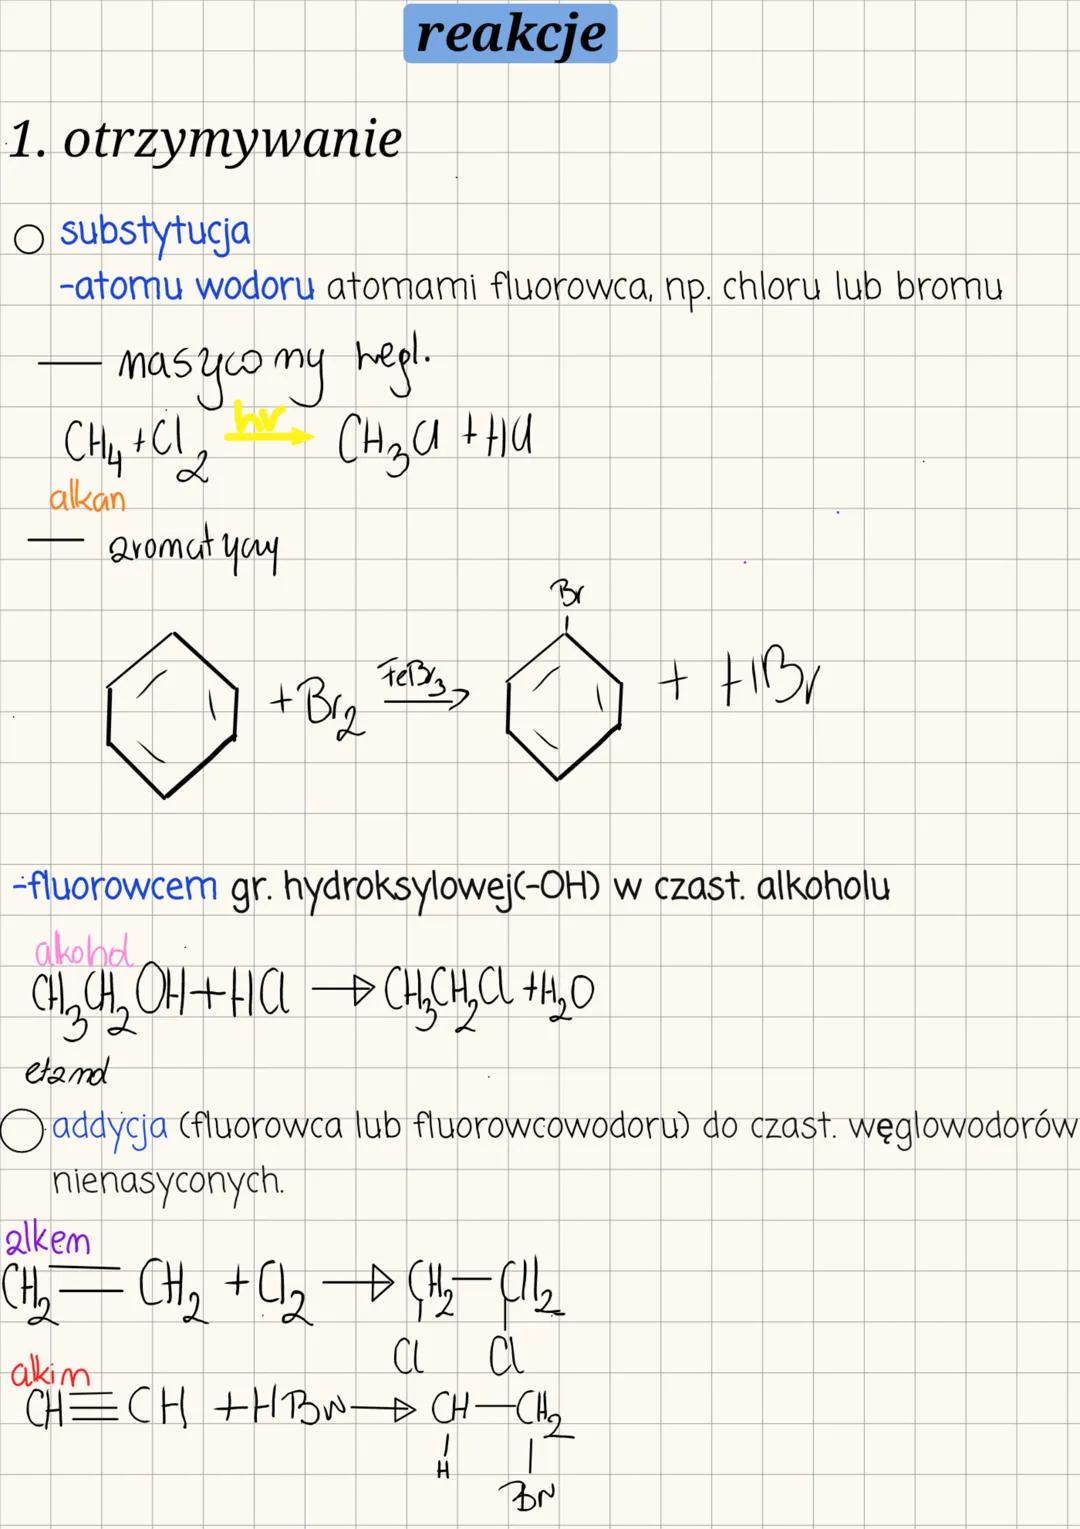 reakcje
1. otrzymywanie
substytucja
-atomu wodoru atomami fluorowca, np. chloru lub bromu
— nasycony węgl.
CH₄ + Cl₂ hv→ CH₃Cl + HCl
alkan
— aromatyczny
Br
+ Br₂ FeBr₃→ + HBr
-fluorowcem gr. hydroksylowej(-OH) w czast. alkoholu
alkohol
CH₃CH₂OH + HCl → CH₃CH₂Cl + H₂O
etanol
addycja (fluorowca lub fluorowcowodoru) do czast. węglowodorów
nienasyconych.
alken
CH₂=CH₂ + Cl₂ → CH₂—CH₂
Cl Cl
alkin
CH≡CH + HBr → CH—CH₂
H Br